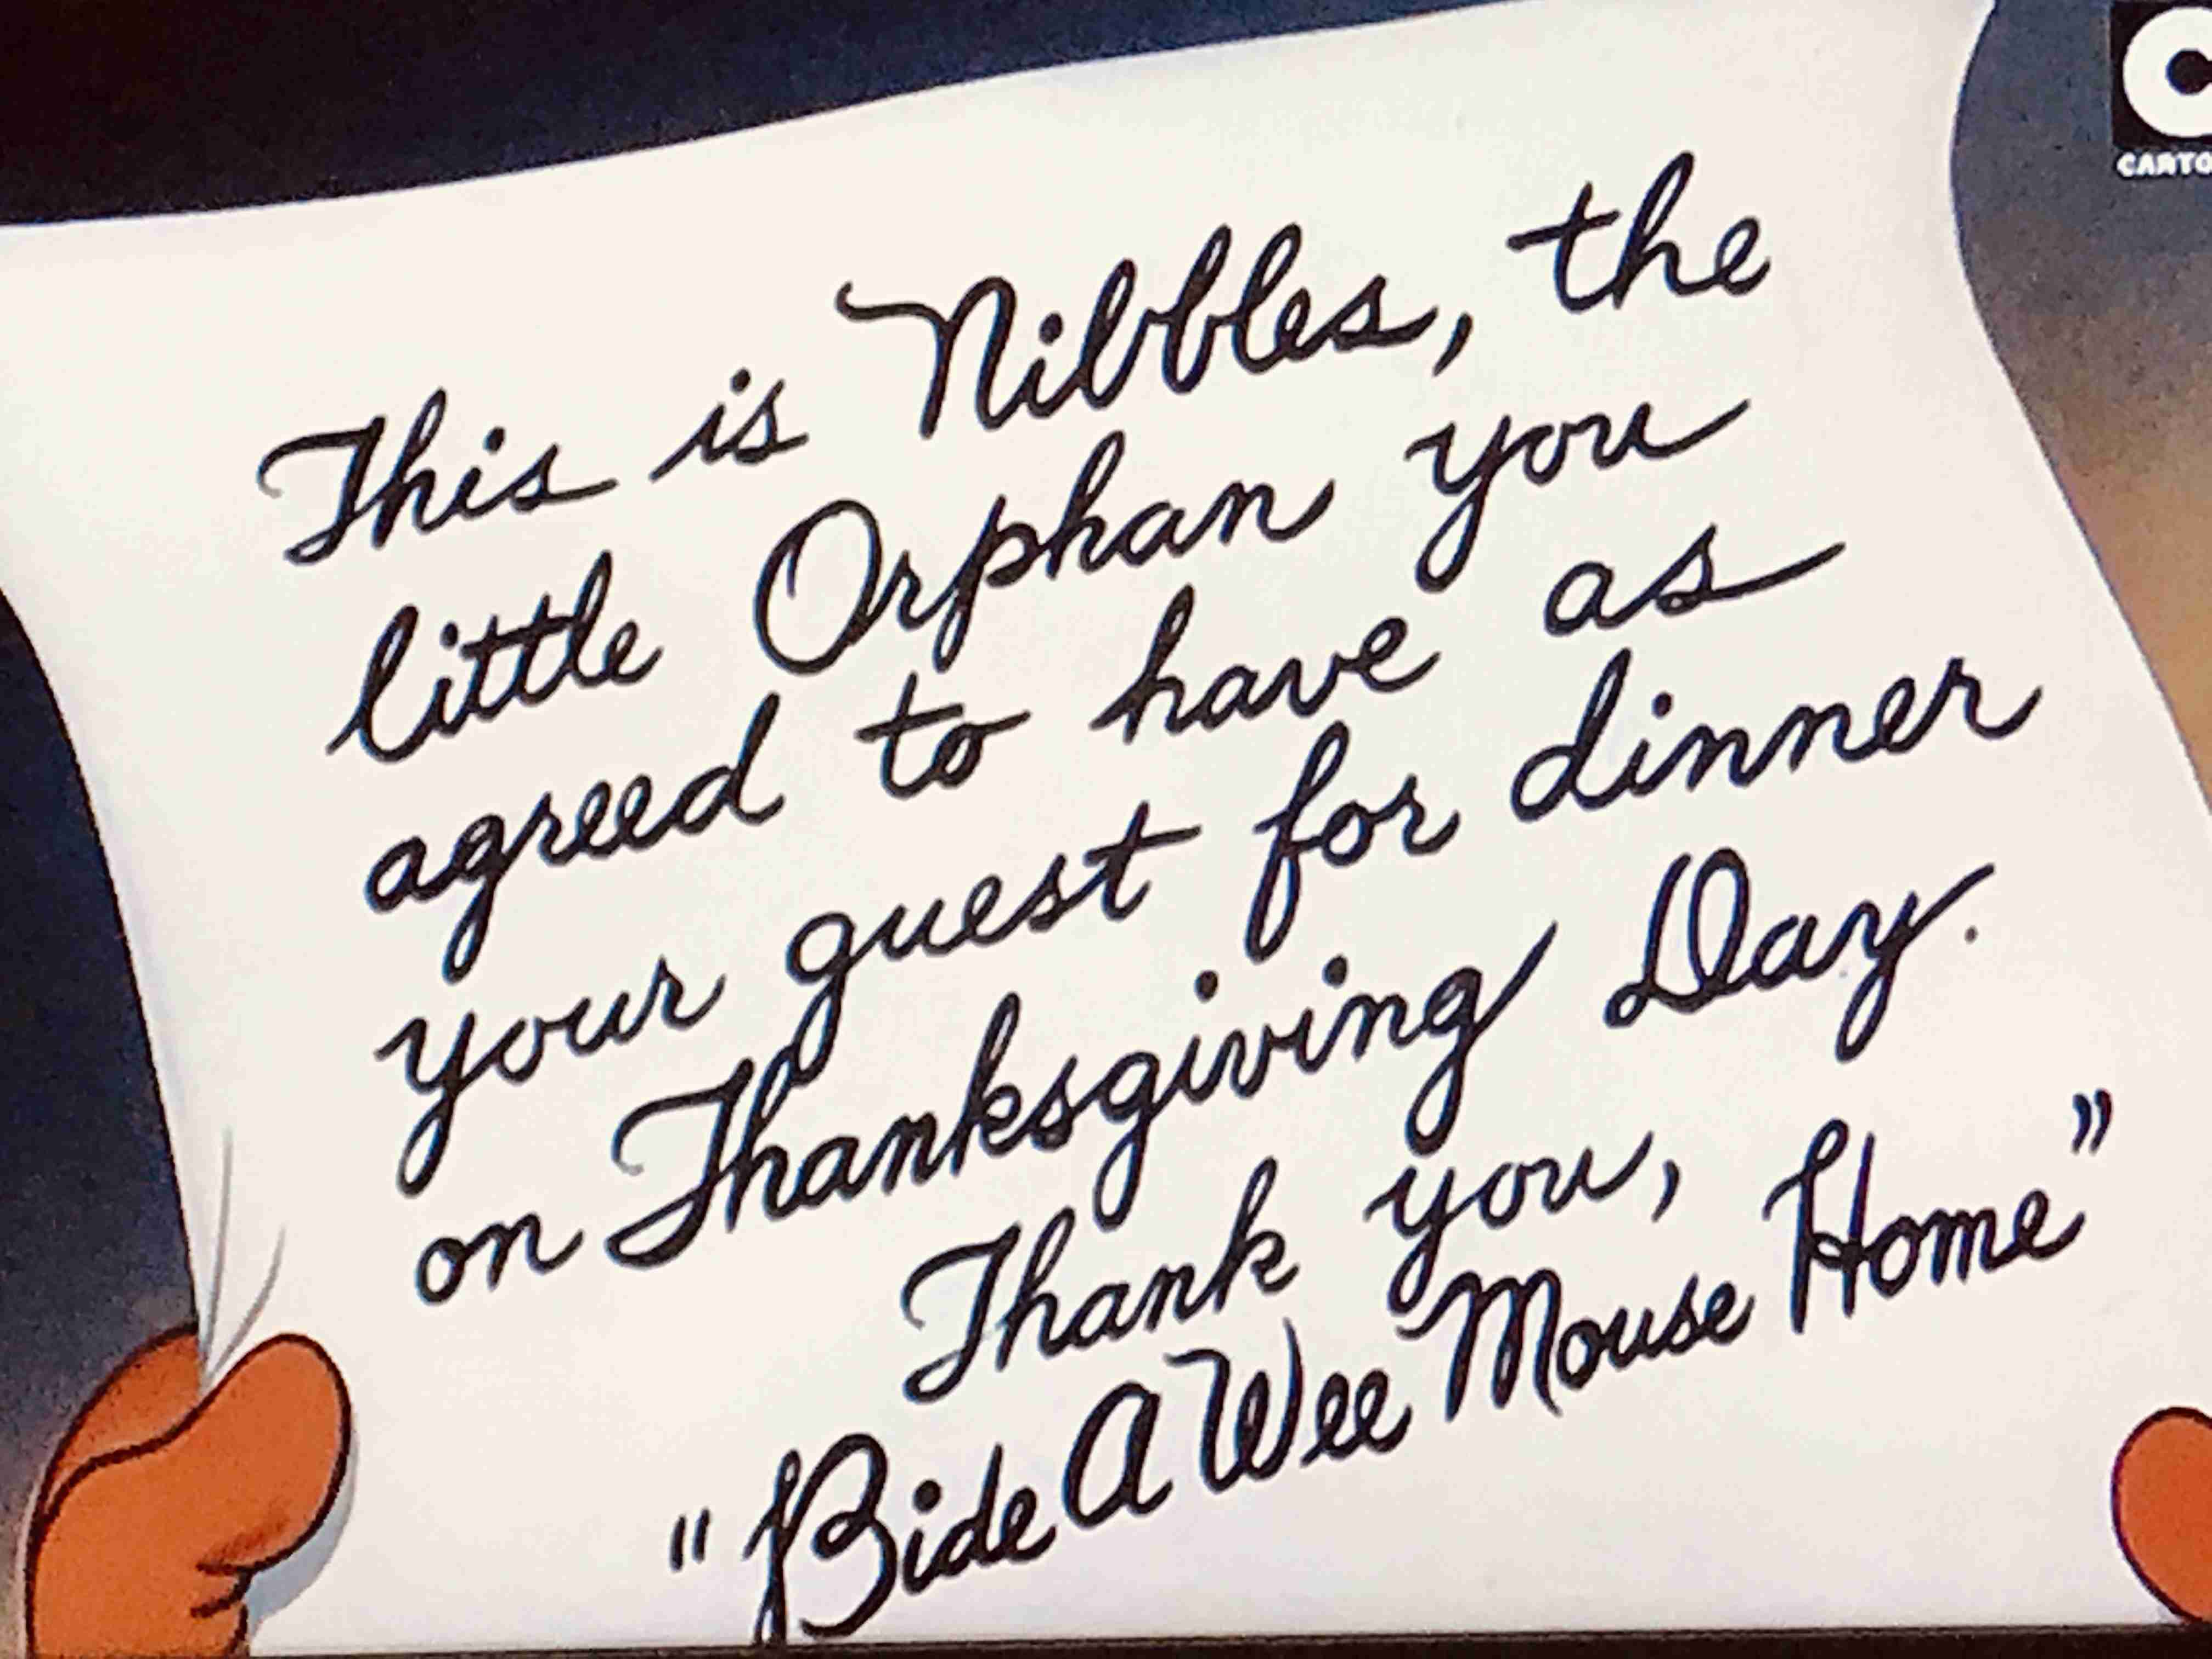 This is Nibbles, the
little Orphan you
agreed to have as
your guest for dinner
on Thanksgiving Day.
Thank you,
"Bide A Wee Mouse Home"
C
CARTO